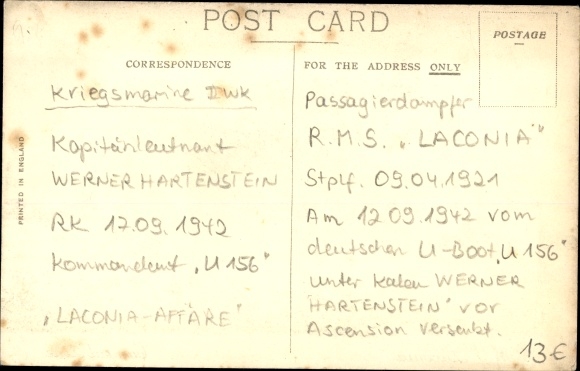 POST CARD
CORRESPONDENCE
Kriegsmarine IIWK
Kapitänleutnant
WERNER HARTENSTEIN
RK 17.09.1942
Kommandant „U 156"
„LACONIA-AFFÄRE"
PRINTED IN ENGLAND
FOR THE ADDRESS ONLY
POSTAGE
Passagierdampfer
R.M.S. „LACONIA"
Stplf. 09.04.1921
Am 12.09.1942 vom
deutschen U-Boot „U 156"
unter WERNER
HARTENSTEIN" vor
Ascension versenkt.
13€